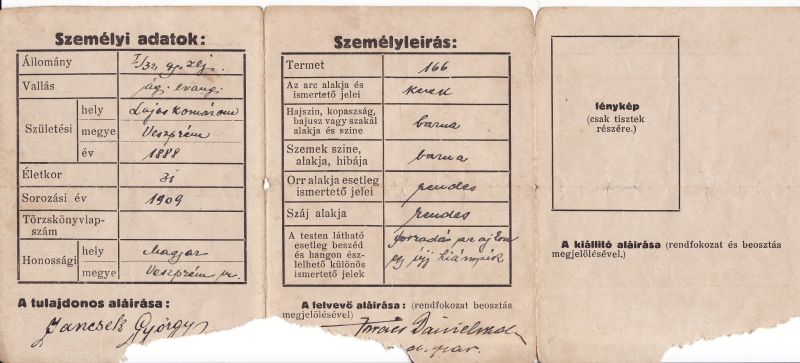 Személyi adatok:
Állomány
Vallás ág. evang.
Születési hely Lajoskomárom
megye Veszprém
év 1888
Életkor 31
Sorozási év 1909
Törzskönyvlap-
szám
Honossági hely Magyar
megye Veszprém m.
A tulajdonos aláirása:
Jancsek György
Személyleirás:
Termet 166
Az arc alakja és
ismertető jelei kerek
Hajszin, kopaszság,
bajusz vagy szakál
alakja és szine barna
Szemek szine,
alakja, hibája barna
Orr alakja esetleg
ismertető jelei rendes
Száj alakja rendes
A testen látható
esetleg beszéd
és hangon ész-
lelhető különös
ismertető jelek
forradás az ajkon
egy ujj hiányzik
A felvevő aláirása: (rendfokozat beosztás
megjelölésével)
Dániel
fénykép
(csak tisztek
részére.)
A kiállitó aláirása (rendfokozat és beosztás
megjelölésével.)